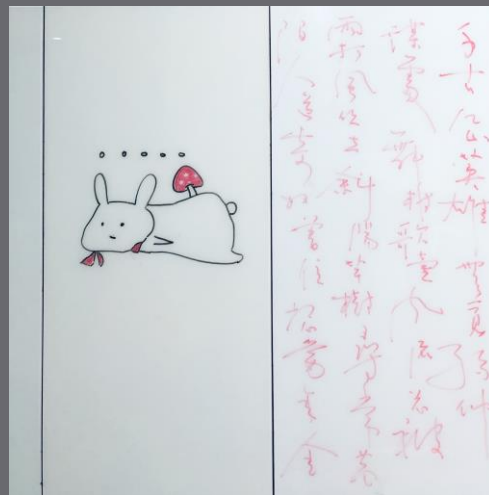 千古江山英雄無覓孫仲
謀處舞榭歌臺風流總被
雨打風吹去斜陽草樹尋常巷
陌人道寄奴曾住想當年金